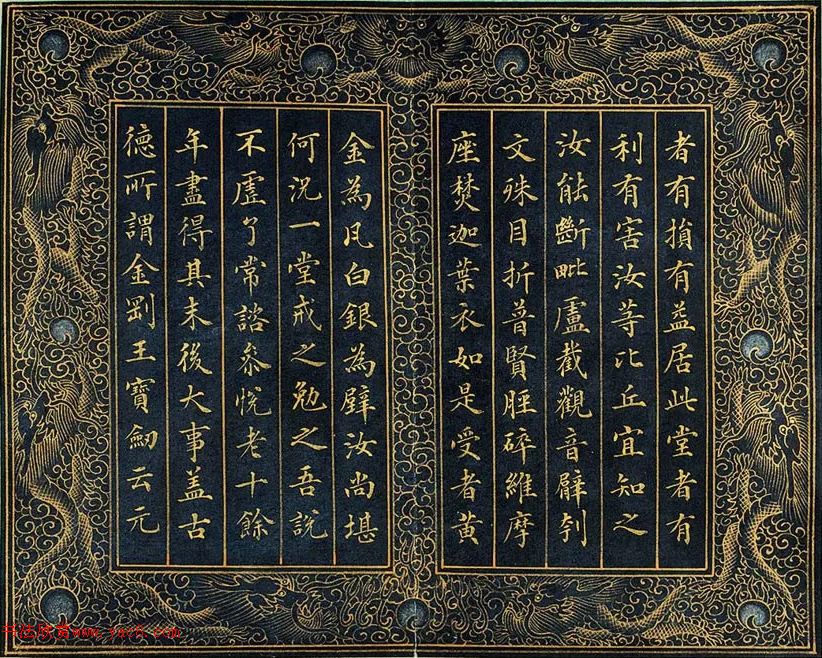 者有損有益居此堂者有
利有害汝等比丘宜知之
汝能斷毗盧截觀音臂刳
文殊目折普賢脛碎維摩
座焚迦葉衣如是受者黄
金為瓦白銀為壁汝尚堪
何況一堂戒之勉之吾說
不虛了常諮參悅老十餘
年盡得其末後大事盖古
德所謂金剛王寶劒云元
书法欣赏www.yac8.com